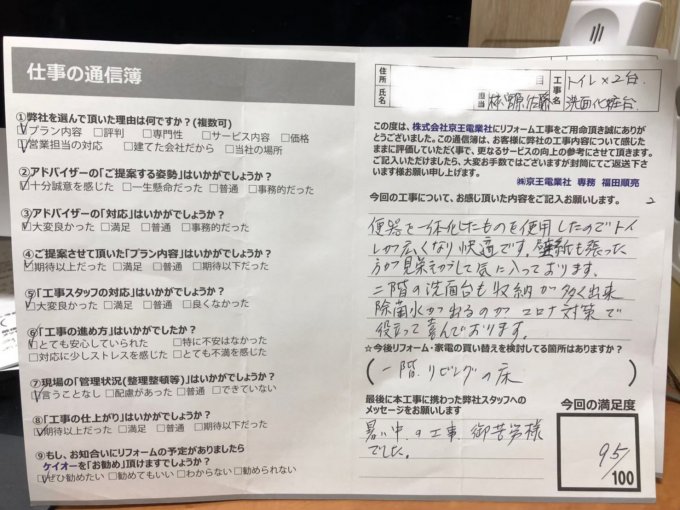 仕事の通信簿
①弊社を選んで頂いた理由は何ですか?(複数可)
☑プラン内容 □評判 □専門性 □サービス内容 □価格
☑営業担当の対応 □建てた会社だから □当社の場所
②アドバイザーの「ご提案する姿勢」はいかがでしょうか?
☑十分誠意を感じた □一生懸命だった □普通 □事務的だった
③アドバイザーの「対応」はいかがでしょうか?
☑大変良かった □満足 □普通 □事務的だった
④ご提案させて頂いた「プラン内容」はいかがでしょうか?
☑期待以上だった □満足 □普通 □期待以下だった
⑤「工事スタッフの対応」はいかがでしょうか?
☑大変良かった □満足 □普通 □良くなかった
⑥「工事の進め方」はいかがでしたか?
☑とても安心していられた □特に不安はなかった
□対応に少しストレスを感じた □とても不満を感じた
⑦現場の「管理状況(整理整頓等)」はいかがでしょうか?
☑言うことなし □配慮があった □普通 □できていない
⑧「工事の仕上がり」はいかがでしょうか?
☑期待以上だった □満足 □普通 □期待以下だった
⑨もし、お知合いにリフォームの予定がありましたら
ケイオーを「お勧め」頂けますでしょうか?
☑ぜひ勧めたい □勧めてもいい □わからない □勧められない
住所
目
氏名
担当
佐藤
工事名
トイレ×2台.
洗面化粧台
この度は、株式会社京王電業社にリフォーム工事をご用命頂き誠にあり
がとうございました。この通信簿は、お客様に弊社の工事内容について感じた
ままに評価していただく事で、更なるサービスの向上の参考にさせて頂きます。
ご記入いただけましたら、大変お手数ではございますが封筒にてご返送下さ
います様お願い申し上げます。
㈱京王電業社 専務 福田順亮
今回の工事について、お感じ頂いた内容をご記入お願いします。
便器を一体化したものを使用したのでトイ
レが広くなり快適です。壁紙も張った
方が見栄えがして気に入っております。
二階の洗面台も収納が多く出来
除菌水が出るのがコロナ対策で
役立って喜んでおります。
☆今後リフォーム・家電の買い替えを検討してる箇所はありますか?
(一階.リビングの床 )
最後に本工事に携わった弊社スタッフへの
メッセージをお願いします
暑い中の工事.御苦労様
でした。
今回の満足度
95/100